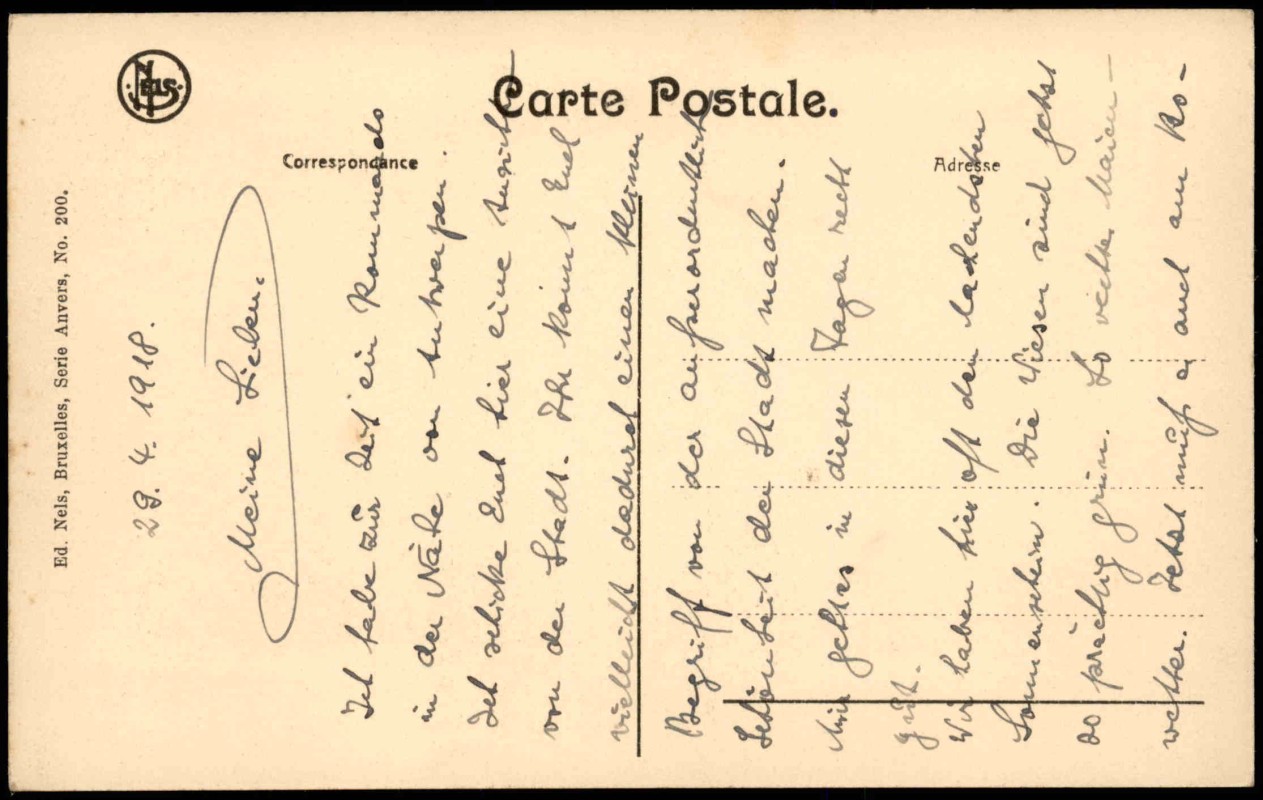 Nels
Carte Postale.
Correspondance
Adresse
Ed. Nels, Bruxelles, Serie Anvers, No. 200.
29. 4. 1918.
Meine Lieben.
Ich habe zur Zeit ein Kommando
in der Nähe von Antwerpen.
Ich schicke Euch hier eine Ansicht
von der Stadt. Ihr könnt Euch
vielleicht dadurch einen kleinen
Begriff von der außerordentlich
Schönheit der Stadt machen.
Mir geht es in diesen Tagen recht
gut.
Wir haben hier oft den lachendsten
Sonnenschein. Die Wiesen sind jetzt
so prächtig grün. So rechtes Maien-
wetter. Jetzt muß es auch am Ro-